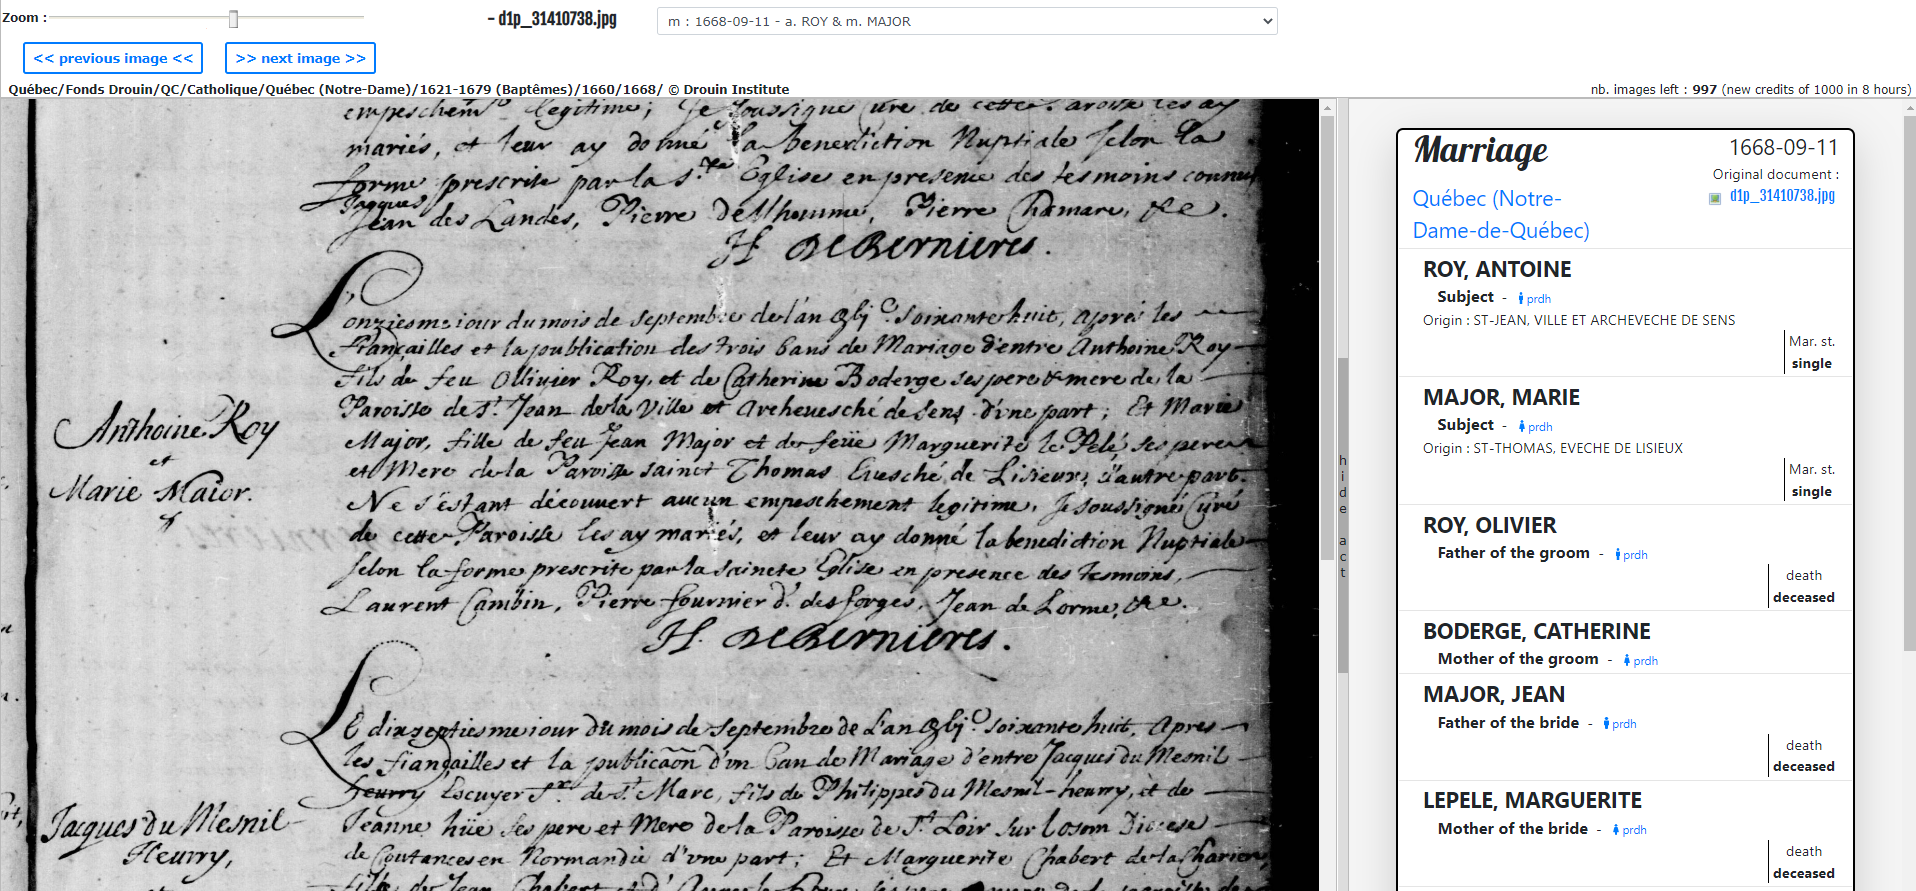 Zoom :
- d1p_31410738.jpg
m : 1668-09-11 - a. ROY & m. MAJOR
<< previous image <<
>> next image >>
Québec/Fonds Drouin/QC/Catholique/Québec (Notre-Dame)/1621-1679 (Baptêmes)/1660/1668/ © Drouin Institute
nb. images left : 997 (new credits of 1000 in 8 hours)
empeschemt legitime, Je soussigné Curé de cette Paroisse les ay
mariés, et leur ay donné la benediction Nuptiale selon la
forme prescrite par la ste Eglise en presence des tesmoins connus
Jacques
Jean des Landes, Pierre Pierre Chamare, &c.
H. DeBernieres.
Anthoine Roy
et
Marie Maior.
L'onziesme iour du mois de septembre de l'an soixante huit, après les
fiançailles et la publication des trois bans de Mariage d'entre Anthoine Roy
fils de feu Ollivier Roy, et de Catherine Boderge ses pere & mere de la
Paroisse de st Jean de la Ville et Archevesché de Sens d'une part; Et Marie
Major, fille de feu Jean Major et de feüe Marguerite le Pelé ses pere
et Mere de la Paroisse sainct Thomas Evesché de Lisieux, d'autre part.
Ne s'éstant découvert aucun empeschement legitime, Je soussigné Curé
de cette Paroisse les ay mariés, et leur ay donné la benediction Nuptiale
selon la forme prescrite par la saincte Eglise en presence des tesmoins,
Laurent Cambin, Pierre fournier d. des forges, Jean de Lorme, &c.
H. DeBernieres.
Jacques du Mesnil
Heurry,
Le dixseptiesme iour du mois de septembre de l'an soixante huit, Apres
les fiançailles et la publicaôn d'un ban de Mariage d'entre Jacques du Mesnil
heurry Escuyer Sr. de st Marc, fils de Philippes du Mesnil-heurry, et de
Jeanne hüe ses pere et Mere de la Paroisse de st Loir sur Diocese
de Coutances en Normandie d'une part; Et Marguerite Chabert de la Charier
fille de Jean Chabert et d'
hide act
Marriage
1668-09-11
Original document :
d1p_31410738.jpg
Québec (Notre-
Dame-de-Québec)
ROY, ANTOINE
Subject - prdh
Origin : ST-JEAN, VILLE ET ARCHEVECHE DE SENS
Mar. st.
single
MAJOR, MARIE
Subject - prdh
Origin : ST-THOMAS, EVECHE DE LISIEUX
Mar. st.
single
ROY, OLIVIER
Father of the groom - prdh
death
deceased
BODERGE, CATHERINE
Mother of the groom - prdh
MAJOR, JEAN
Father of the bride - prdh
death
deceased
LEPELE, MARGUERITE
Mother of the bride - prdh
death
deceased